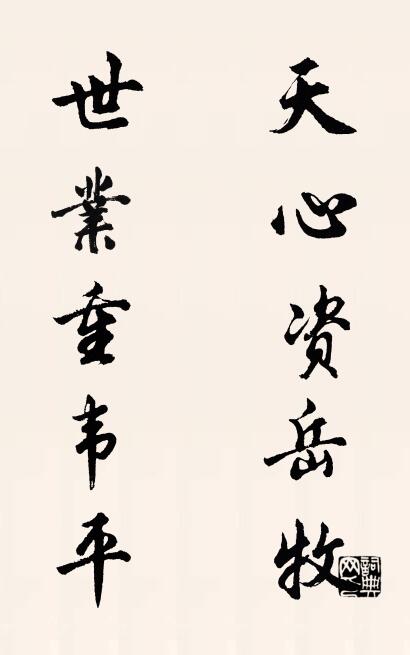 天心资岳牧
世業重韦平
詞典网